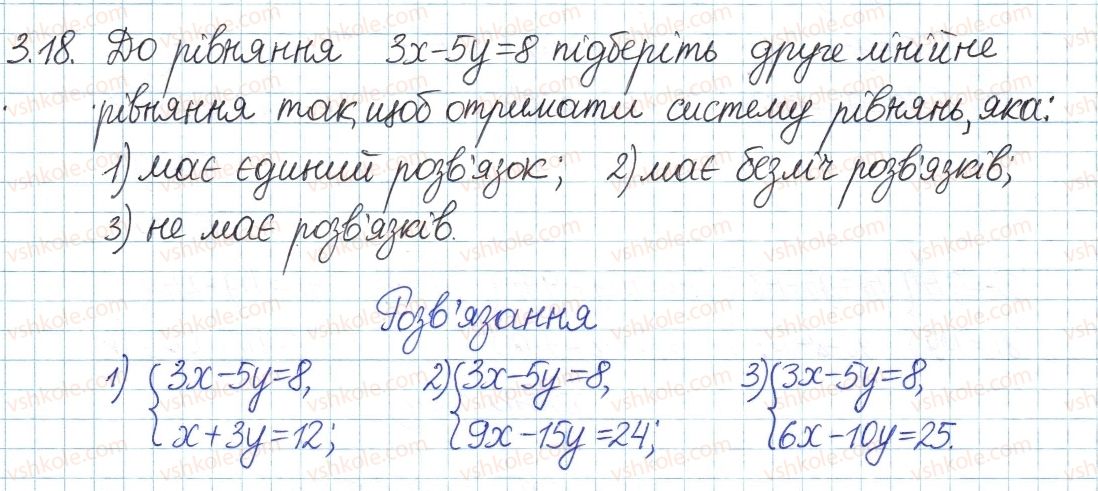 3.18. До рівняння 3x-5y=8 підберіть друге лінійне
рівняння так, щоб отримати систему рівнянь, яка:
1) має єдиний розв'язок; 2) має безліч розв'язків;
3) не має розв'язків.
Розв'язання
1) {3x-5y=8, 2) {3x-5y=8, 3) {3x-5y=8,
x+3y=12; 9x-15y=24; 6x-10y=25.